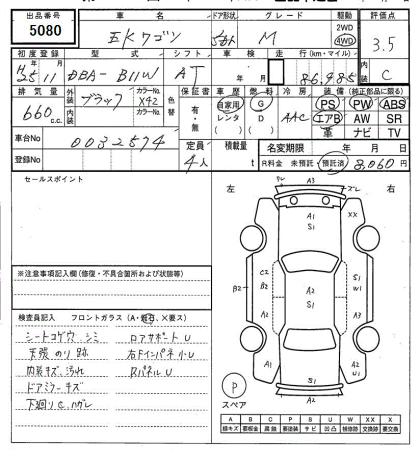 出品番号 車名 ドア形状 グレード 駆動 評価点
5080 eKワゴン 5ドア M 2WD 4WD 3.5
初度登録 型式 シフト 車検 走行(km・マイル) 内装
H25 11 DBA-B11W AT 年 月 86,985 C
排気量 外装 カラーNo. 色替 保証書 車歴 燃料 冷房 装備(純正部品に限る)
660 c.c. ブラック X42 有・無 自家用 G AAC PS PW ABS
内装 カラーNo. レンタ D エアB AW SR
革 ナビ TV
車台No 0032574 定員 積載量 名変期限 年 月 日
登録No 4人 t R料金 未預託 預託済 8,060円
セールスポイント
左 右
A3
A1 XX
S1
C2 S1
B2 B2 A2 W1 A3
S1
A2
A1 A2
S1 U1
A3
※注意事項記入欄(修復・不具合箇所および状態等)
検査員記入 フロントガラス(A・飛石・X要ス)
シートコゲ穴、シミ ロアサポートU
天張のり跡 右ドインパネ小U
内装キズ、汚れ RパネルU
ドアミラーキズ
下廻りC、ハゲレ
P
スペア
A B C P S U W X XX
線キズ 要板金 腐蝕 要塗装 サビ 凹凸 補修跡 要交換 交換済